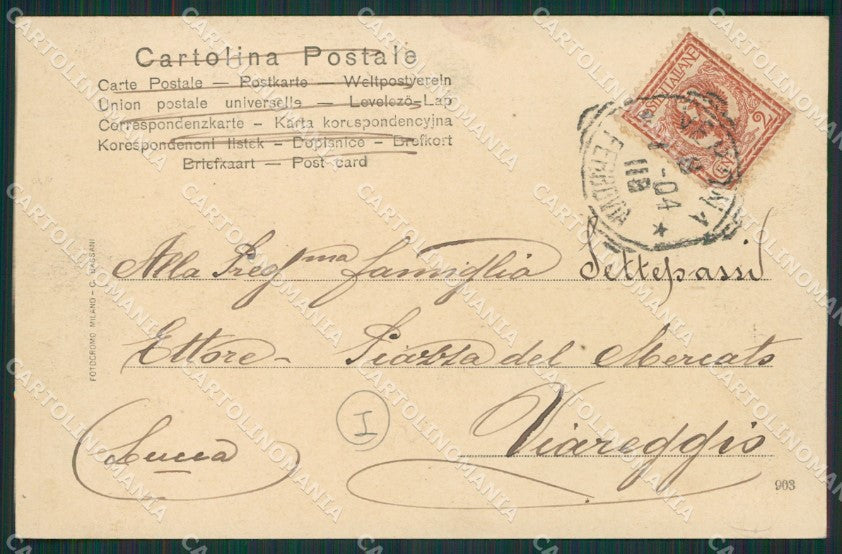 Cartolina Postale
Carte Postale — Postkarte — Weltpostverein
Union postale universelle — Levelező-Lap
Correspondenzkarte - Karta korespondencyjna
Korespondencni listek — Dopisnice — Brefkort
Briefkaart — Post card
POSTE ITALIANE
2
FERROVIA
-04
11 B
Alla Preg.ma famiglia Settepassi
Ettore - Piazza del Mercato
Viareggio
(Lucca)
I
903
FOTOCROMO MILANO - C. BASSANI
CARTOLINOMANIA